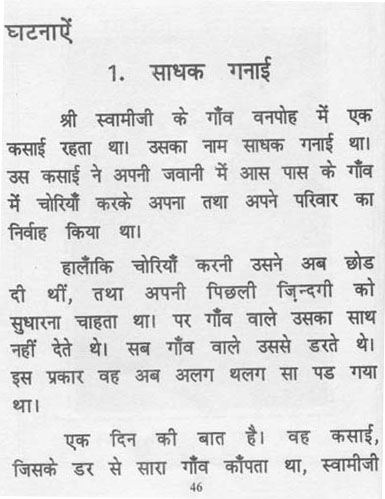 घटनाऐं
1. साधक गनाई
श्री स्वामीजी के गाँव वनपोह में एक
कसाई रहता था। उसका नाम साधक गनाई था।
उस कसाई ने अपनी जवानी में आस पास के गाँव
में चोरियाँ करके अपना तथा अपने परिवार का
निर्वाह किया था।
हालाँकि चोरियाँ करनी उसने अब छोड
दी थीं, तथा अपनी पिछली ज़िन्दगी को
सुधारना चाहता था। पर गाँव वाले उसका साथ
नहीं देते थे। सब गाँव वाले उससे डरते थे।
इस प्रकार वह अब अलग थलग सा पड गया
था।
एक दिन की बात है। वह कसाई,
जिसके डर से सारा गाँव काँपता था, स्वामीजी
46